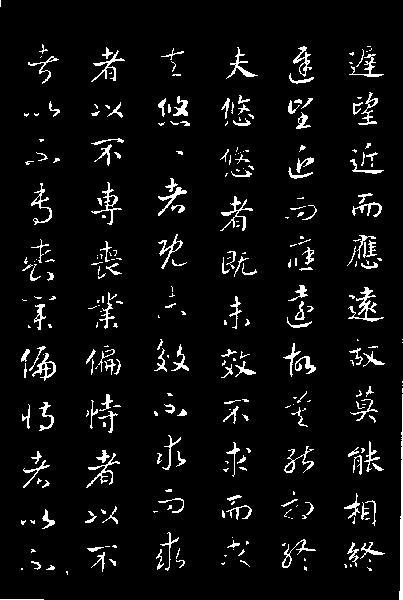 遲望近而應遠故莫能相終
遲望近而應遠故莫能相終
夫悠悠者既未效不求而求
夫悠〻者既未效不求而求
者以不專喪業偏恃者以不
者以不專喪業偏恃者以不